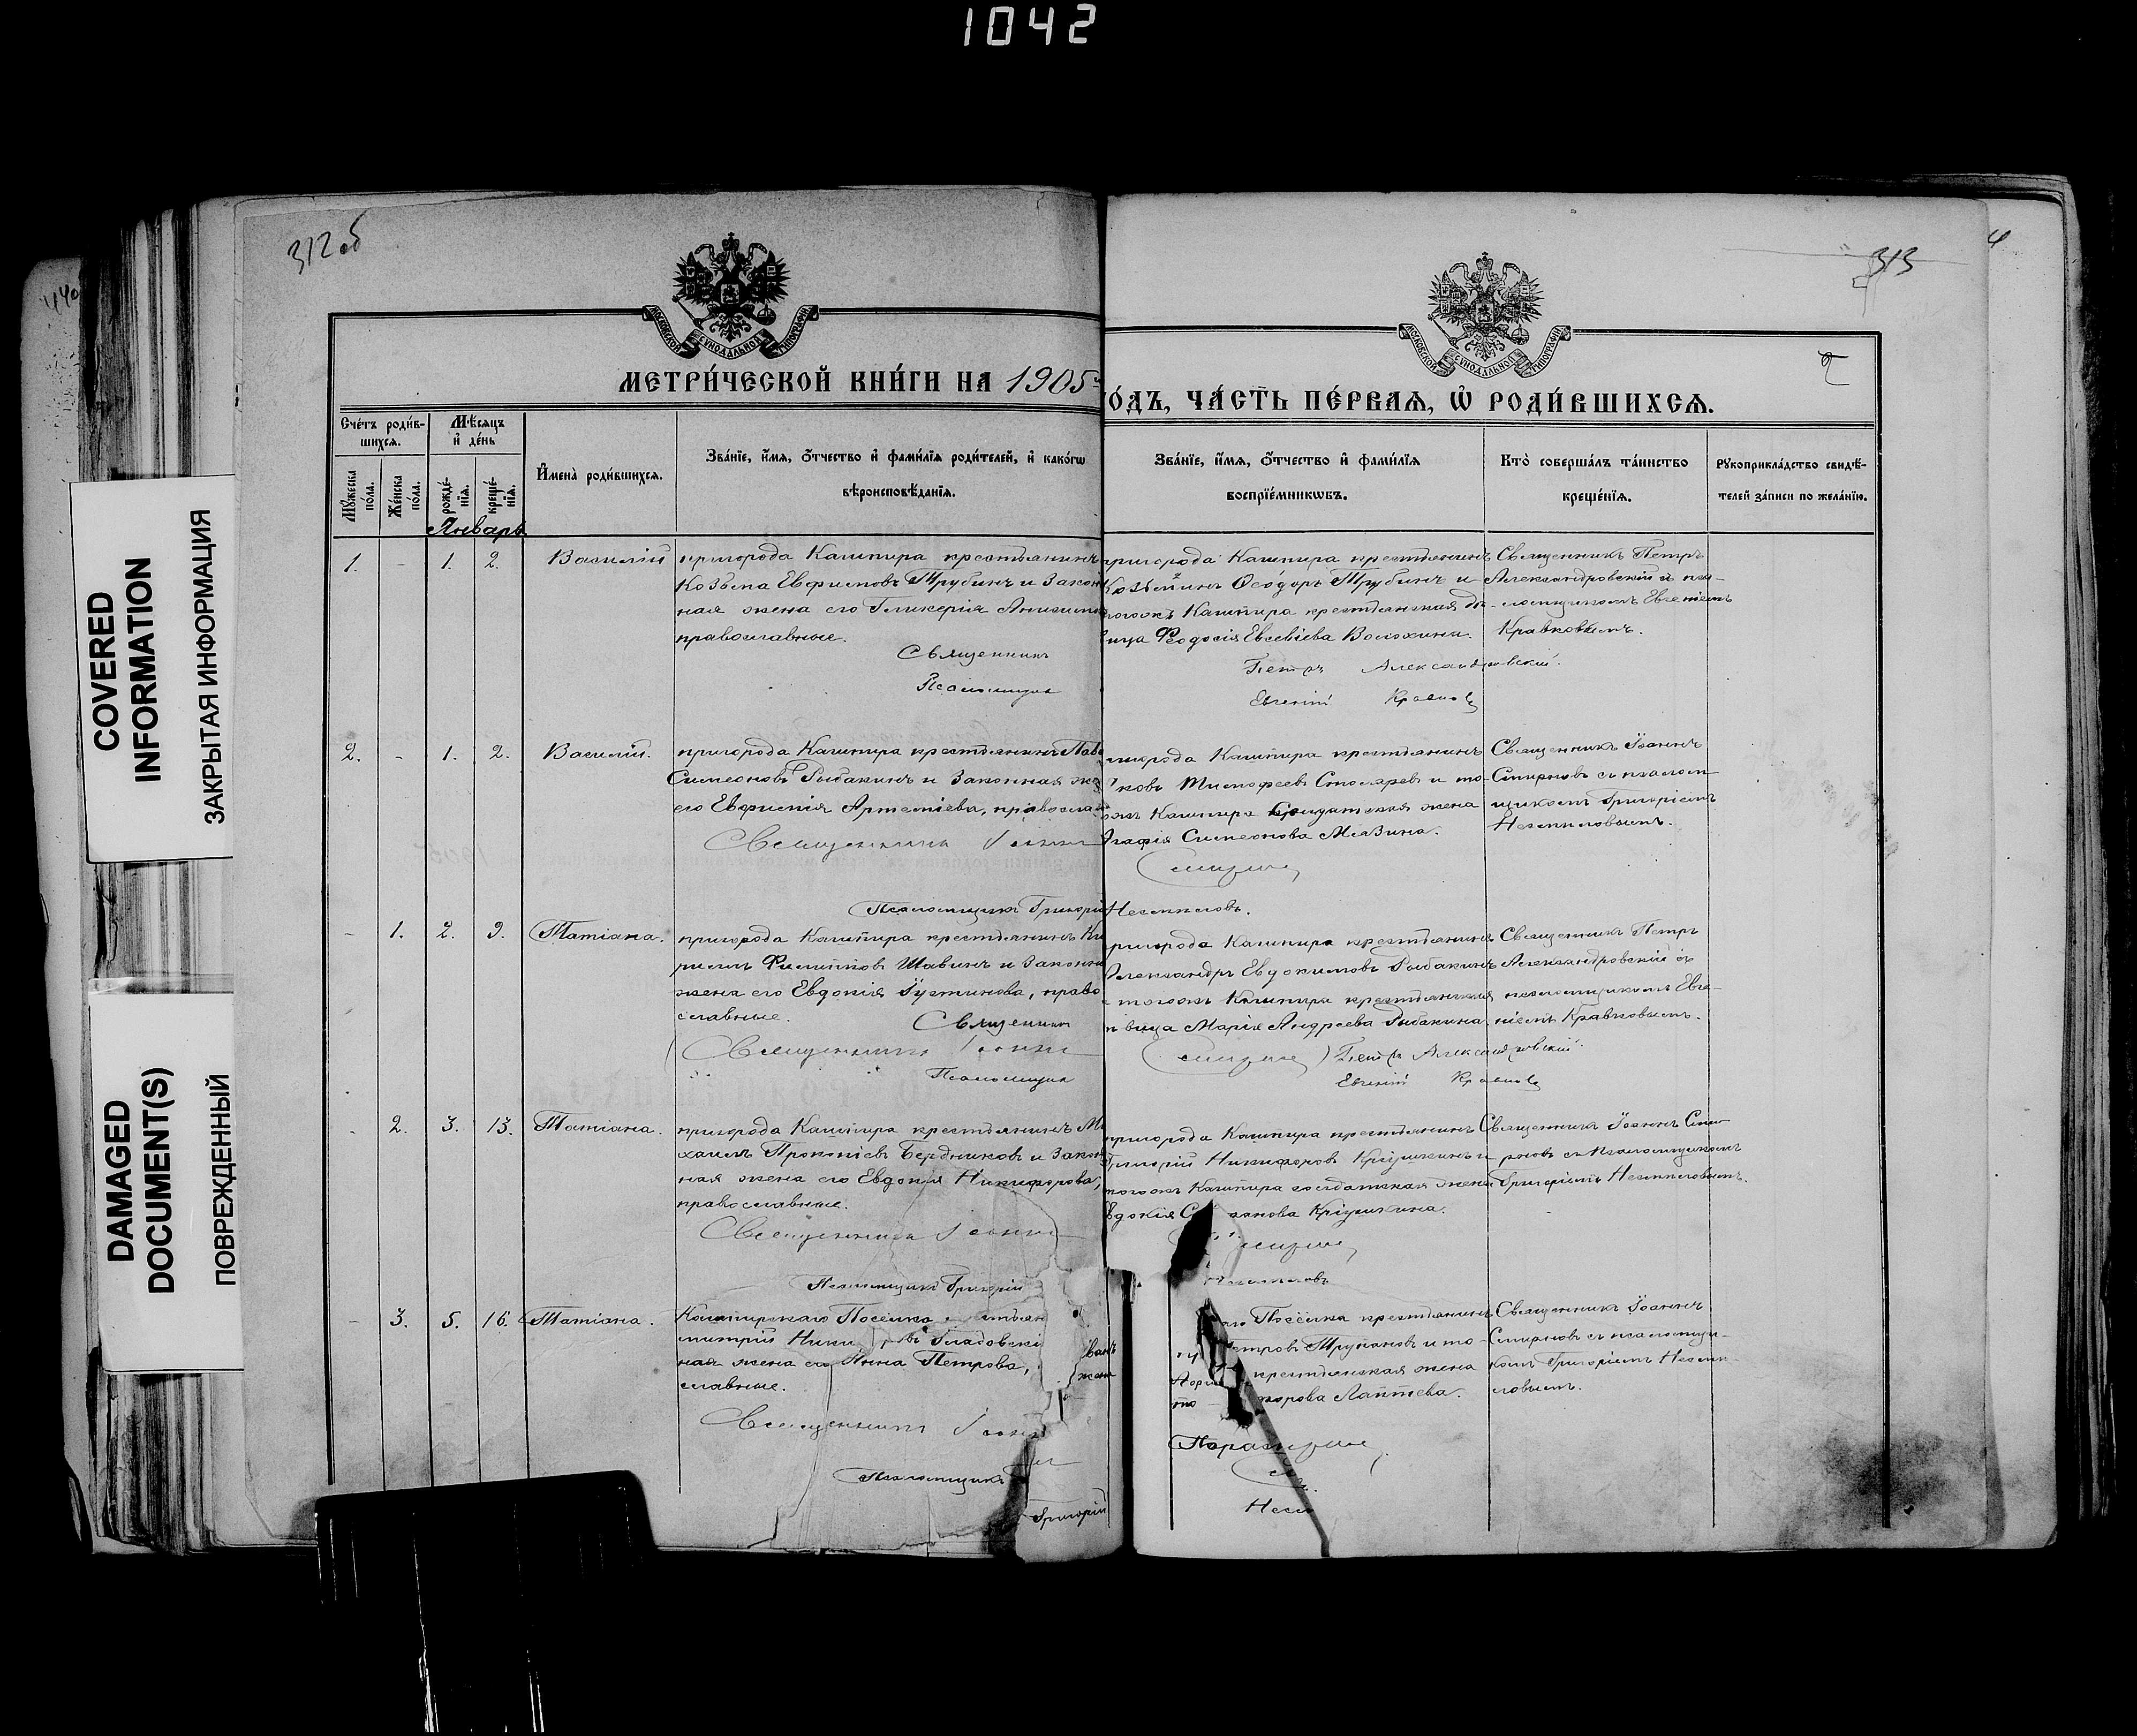 1042
312 об
313
COVERED INFORMATION
ЗАКРЫТАЯ ИНФОРМАЦИЯ
DAMAGED DOCUMENT(S)
ПОВРЕЖДЕННЫЙ
МОСКОВСКОЙ СУНОДАЛЬНОЙ ТИПОГРАФІИ
МОСКОВСКОЙ СУНОДАЛЬНОЙ ТИПОГРАФІИ
МЕТРИ́ЧЕСКОЙ КНИ́ГИ НА 1905
О́ДЪ, ЧА́СТЬ ПЕ́РВАѦ, Ѡ҆ РОДИ́ВШИХСѦ.
Сче́тъ роди́в-
шихсѧ.
Мꙋ́жеска по́ла.
Же́нска по́ла.
Мѣ́сѧцъ
и҆ де́нь
рожде́-
нїѧ.
креще́-
нїѧ.
И҆мена̀ роди́вшихсѧ.
Зва́нїе, и҆́мѧ, ѻ҆́тчество и҆ фами́лїѧ роди́телей, и҆ како́гѡ
вѣроисповѣ́данїѧ.
Зва́нїе, и҆́мѧ, ѻ҆́тчество и҆ фами́лїѧ
воспрїе́мникѡвъ.
Кто̀ соверша́лъ та́инство
креще́нїѧ.
Рꙋкоприкла́дство свидѣ́-
телей за́писи по жела́нїю.
Январь
1. - 1. 2. Василій
пригорода Кашпира крестьянинъ
Козьма Евфимовъ Трубинъ и закон
ная жена его Гликерія Анисим
православные.
Священникъ
Псаломщик
пригорода Кашпира крестьянинъ
Козьминъ Ѳеодоръ Трубинъ и
тогожъ Кашпира крестьянская дѣ-
вица Феодосія Евсевіева Волохина.
Петръ Александровскій.
Евгеній Кравков
Священникъ Петръ
Александровскій съ пса-
ломщикомъ Евгеніемъ
Кравковымъ.
2. - 1. 2. Василій.
пригорода Кашпира крестьянинъ Паве
Симеоновъ Рыбакинъ и законная же
его Евфимія Артеміева, правосла
Священникъ Іоанн
Псаломщикъ Григорій
пригорода Кашпира крестьянинъ
ковъ Тимофеевъ Столяревъ и то-
гожъ Кашпира солдатская жена
Агафія Симеонова Мазина.
Смирнов
Несмеловъ.
Священникъ Іоаннъ
Смирновъ съ псалом-
щикомъ Григоріемъ
Несмеловымъ.
- 1. 2. 9. Татіана.
пригорода Кашпира крестьянинъ Ки
риллъ Филипповъ Шавинъ и законна
жена его Евдокія Іустинова, право
славные.
Священник
Священникъ Іоанн
Псаломщик
пригорода Кашпира крестьянинъ
Александръ Евдокимовъ Рыбакинъ
и тогожъ Кашпира крестьянская
вица Марія Андреева Рыбакина.
Смирнов Петръ Александровскій
Евгеній Кравков
Священникъ Петръ
Александровскій съ
псаломщикомъ Евге-
ніемъ Кравковымъ.
- 2. 3. 13. Татіана.
пригорода Кашпира крестьянинъ Ми
хаилъ Прокопіевъ Бердниковъ и закон
ная жена его Евдокія Никифорова,
православные.
Священникъ Іоанн
Псаломщикъ Григорій
пригорода Кашпира крестьянинъ
Григорій Никифоровъ Кріушкинъ и
тогожъ Кашпира солдатская жена
Евдокія анова Кріушкина.
Смирнов
Несмеловъ
Священникъ Іоаннъ Сми-
рновъ съ псаломщикомъ
Григоріемъ Несмеловымъ.
- 3. 5. 16. Татіана.
Кашпирскаго Посёлка стьян
митрій Ники въ Гладовскі
ная жена его Анна Петрова,
славные.
Священникъ Іоанн
Псаломщикъ
Григорій
Посёлка крестьянинъ
Петровъ Трухановъ и то-
крестьянская жена
жорова Лаптева.
Несм
Священникъ Іоаннъ
Смирновъ съ псаломщи-
комъ Григоріемъ Несме-
ловымъ.